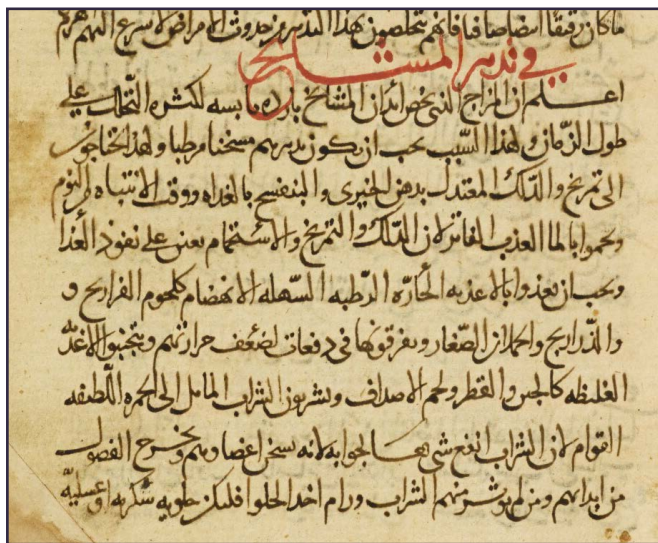 ما كان رقيقا ايضا صافيا فانهم يتخلصون بهذا التدبير من حدوث الامراض لاسرع اليهم هرم
في تدبير المشايخ
اعلم ان المزاج الذي يخص ابدان المشايخ بارده يابسه لكثره التحلل على
طول الزمان ولهذا السبب يجب ان يكون تدبيرهم مسخنا مرطبا ولهذا يحتاجون
الى تمريخ والدلك المعتدل بدهن الخيرى والبنفسج بالغداه ووقت الانتباه من النوم
ويحموا بالما العذب الفاتر لان الدلك والتمريخ والاستحمام يعين على نفوذ الغذا
ويجب ان يغذوا بالاغذيه الحاره الرطبه السهله الانهضام كلحوم الفراريج و
والدراريج والحملان الصغار ويفرقونها في دفعات لضعف حرارتهم ويتجنبوا الاغذيه
الغليظه كالجبن والفطر ولحم الاصداف ويشربون الشراب المايل الى الحمره اللطيفه
القوام لان الشراب انفع شي يعالجوا به لانه يسخن اعضاوهم ويخرج الفضول
من ابدانهم ومن لم يوثر منهم الشراب ورام اخذ الحلوا فليكن حلويه سكريه او عسليه